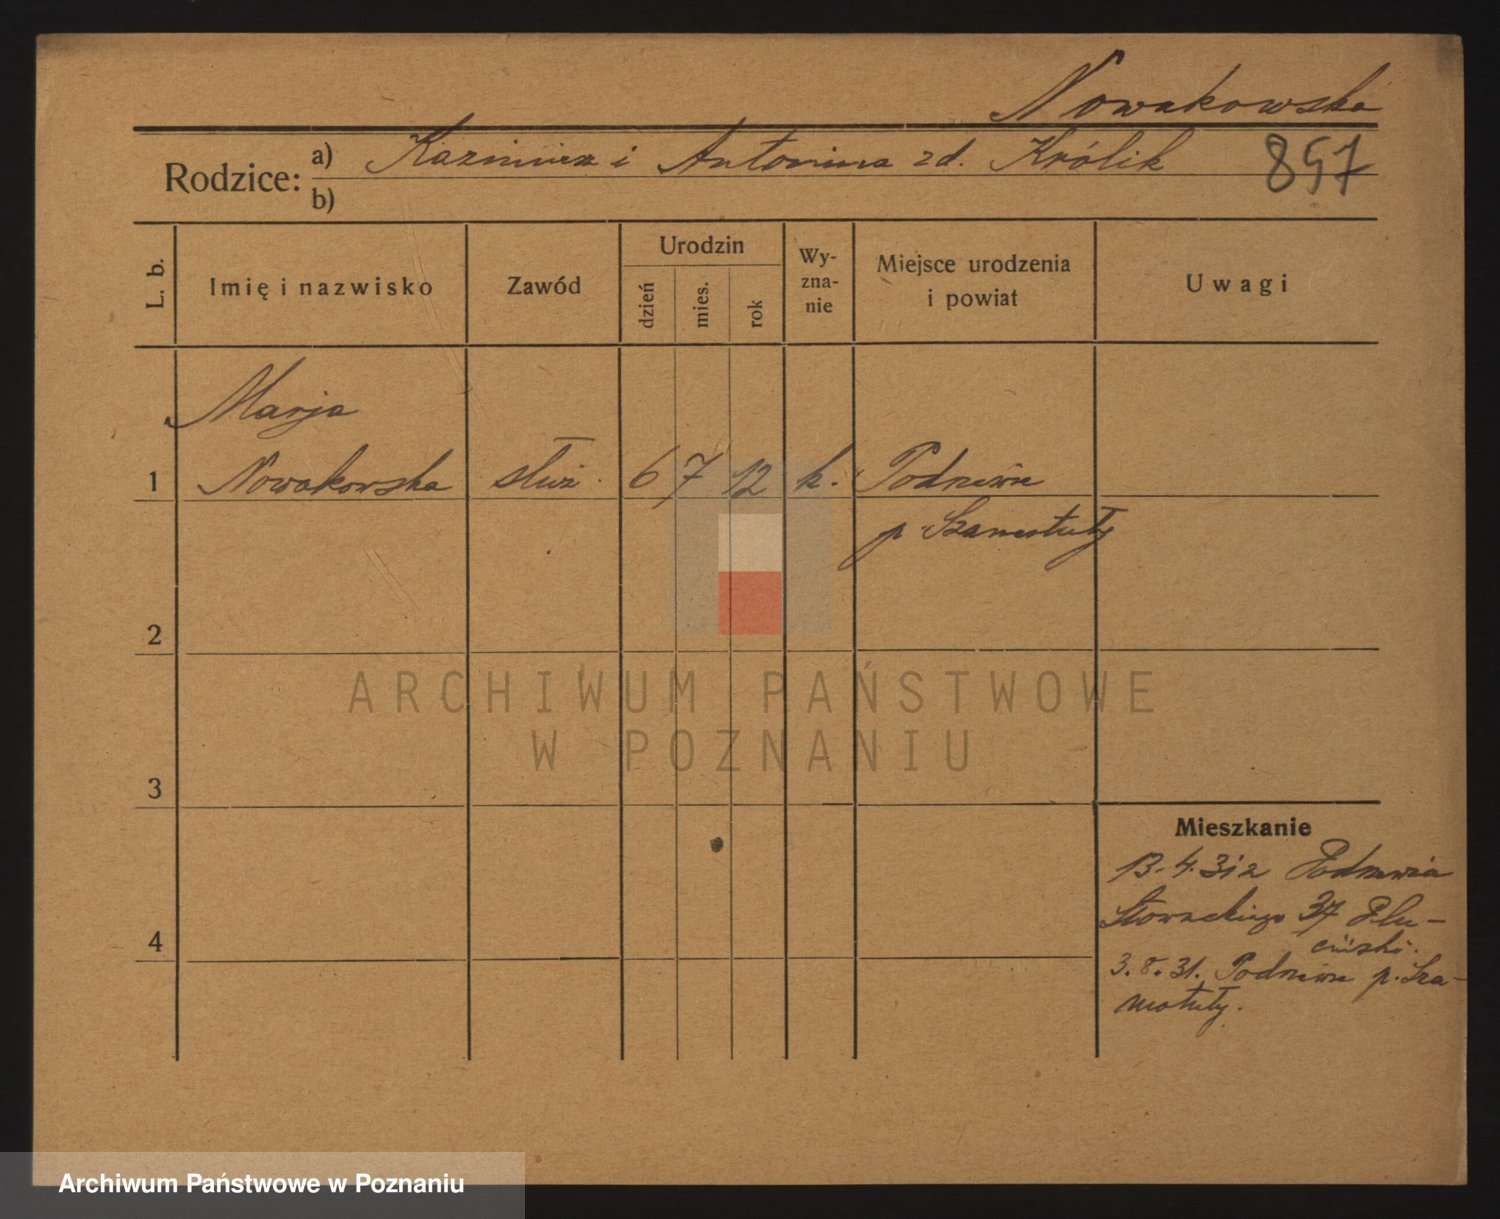 Nowakowska
Rodzice: a) Kazimierz i Antonina zd. Królik 857
b)
L. b. Imię i nazwisko Zawód Urodzin dzień mies. rok Wy-zna-nie Miejsce urodzenia i powiat Uwagi
Marja
1 Nowakowska służ. 6 7 12 k. Podrzewie
p Szamotuły
2
ARCHIWUM PAŃSTWOWE
W POZNANIU
3
Mieszkanie
13.4.31 z Podrzewia
Słowackiego 37 Plu-
ciński.
4
3.8.31. Podrzewie p. Sza-
motuły.
Archiwum Państwowe w Poznaniu